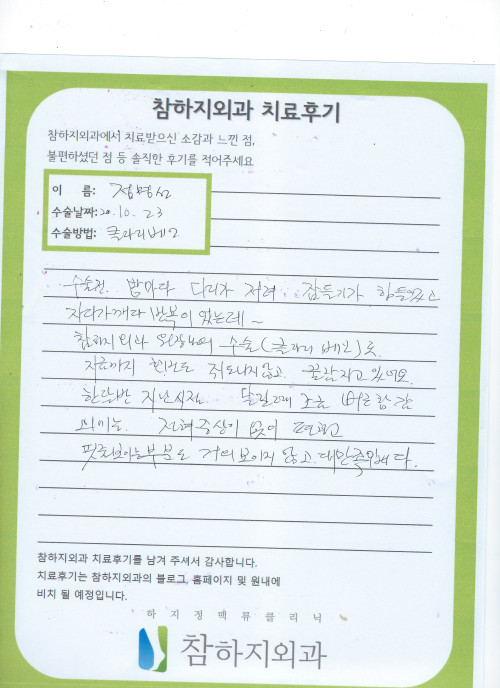 참하지외과 치료후기
참하지외과에서 치료받으신 소감과 느낀 점,
불편하셨던 점 등 솔직한 후기를 적어주세요
이 름: 정명선
수술날짜: 20. 10. 23
수술방법: 클라리베인
수술전. 밤마다 다리가 저려 잠들기가 힘들었고
자다가 깨다 반복이었는데~
참하지외과 원장님의 수술(클라리베인)로.
지금까지 한번도 쥐도나지않고. 꿀잠자고있어요.
한달반 지난시점. 달릴때 조금
외에는. 전혀증상이 없이 편하고
핏줄보이는부분도 거의보이지 않고. 대만족입니다.
참하지외과 치료후기를 남겨 주셔서 감사합니다.
치료후기는 참하지외과의 블로그, 홈페이지 및 원내에
비치 될 예정입니다.
하지정맥류클리닉
참하지외과